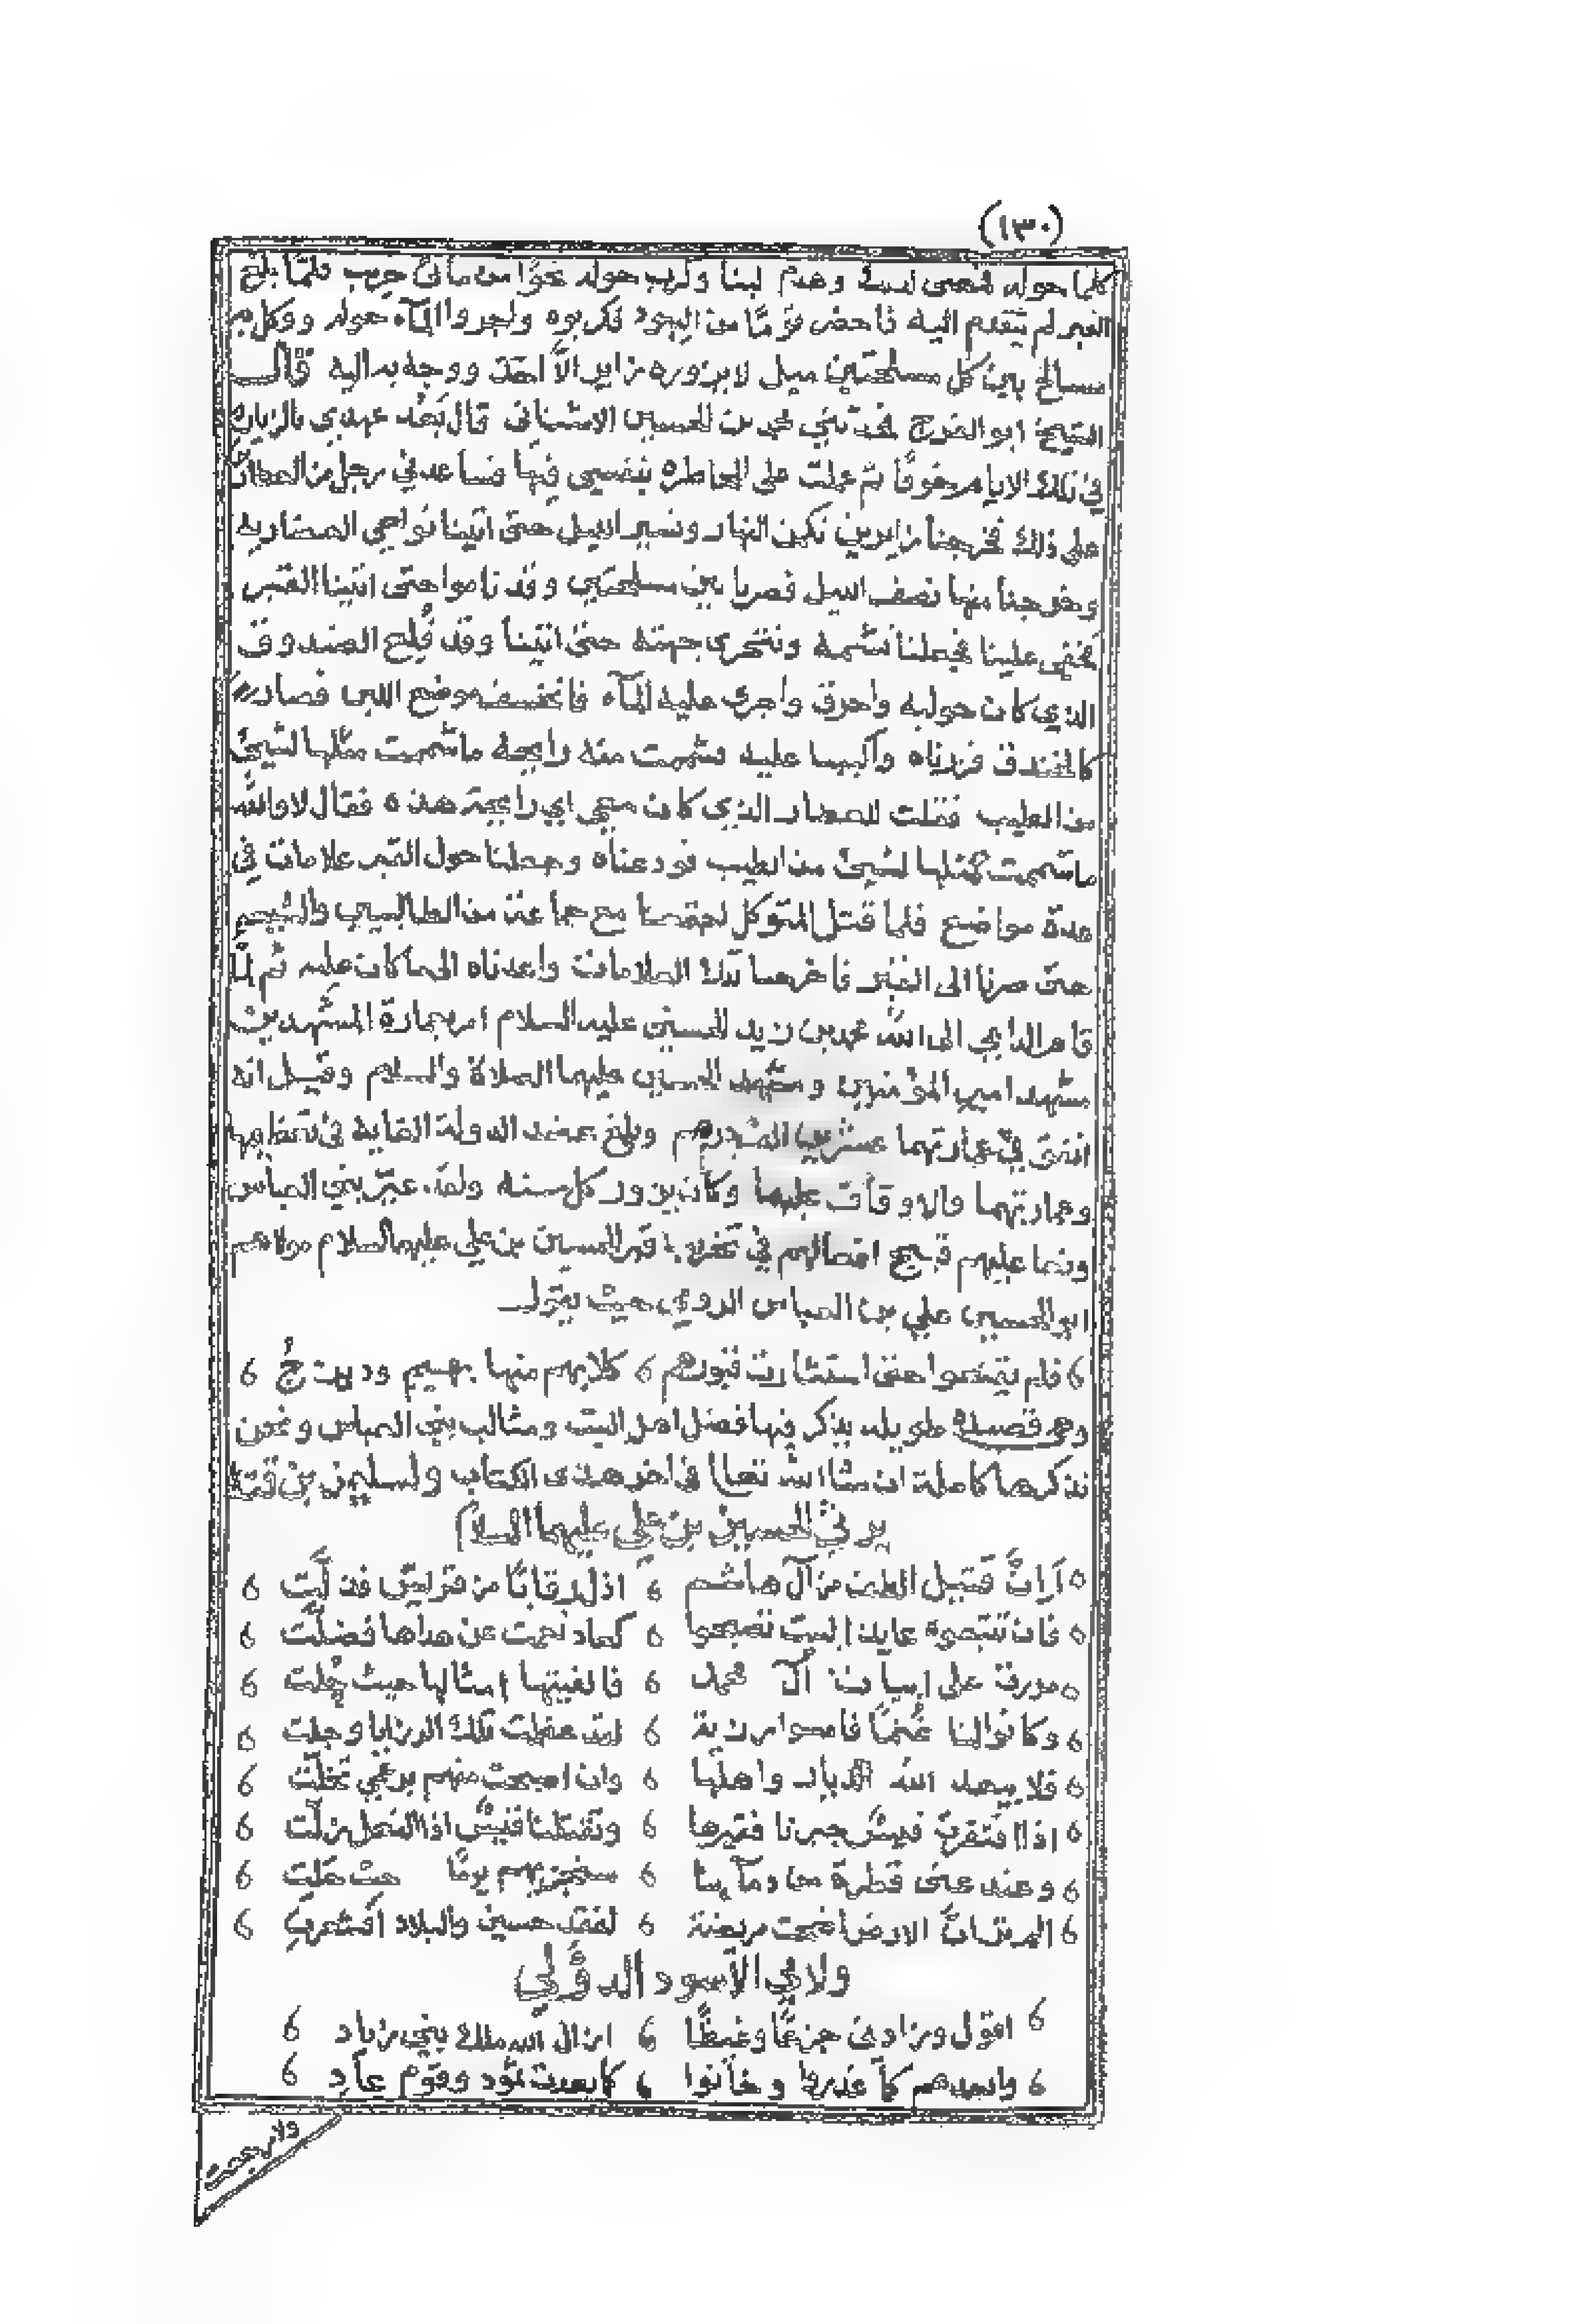 (١٣٠)
كلما حوله فمضى لذلك وهدم البنا وكرب حوله نحوا من مائتي جريب فلما بلغ
القبر لم يتقدم اليه فاحضر قومًا من اليهود فكربوه واجروا المآء حوله ووكل به
مسالح بين كل مسلحتين ميل لا يزوره زاير الّا اخذ ووجه به اليه قال
الشيخ ابو الفرج فحدثني محمد بن الحسين الاشناني قال بَعُد عهدي بالزياره
في تلك الايام خوفًا ثم عملت على المخاطره بنفسي فيها وساعدني رجل من العطارين
على ذلك فخرجنا زايرين نكمن النهار ونسير الليل حتى اتينا نواحي الغاضريه
وخرجنا منها نصف الليل فصرنا بين مسلحتين وقد ناموا حتى اتينا القبر
فخفي علينا فجعلنا نشمه ونتحرى جهته حتى اتيناه وقد قُلِع الصندوق
الذي كان حوليه واحرق واجري عليه المآء فانخسف موضع اللبن فصار
كالخندق فزرناه واكببنا عليه فشممت منه رايحة ما شممت مثلها لشيئ
من الطيب فقلت للعطار الذي كان معي اي رايحة هذه فقال لا والله
ما شممت كمثلها لشيئ من الطيب فودعناه وجعلنا حول القبر علامات في
عدة مواضع فلما قتل المتوكل اجتمعنا مع جماعة من الطالبيين والشيعه
حتى صرنا الى القبر فاخرجنا تلك العلامات واعدناه الى ما كان عليه ثم لما
قام الداعي الى الله محمد بن زيد الحسني عليه السلام امر بعمارة المشهدين
مشهد امير المؤمنين ومشهد الحسين عليهما الصلاة والسلام وقيل انه
انفق في عمارتهما عشرين الف درهم وبلغ عضد الدولة الغاية في تعظيمهما
وعمارتهما والاوقاف عليهما وكان يزور كل سنه ولقد عيّر بني العباس
ونعا عليهم قبيح افعالهم في تخريب قبر الحسين بن علي عليهما السلام مولاهم
ابو الحسين علي بن العباس الرومي حيث يقول
فلم تقنعوا حتى استثارت قبورهم 6 كلابهم منها بهيم وديزج 6
وهي قصيدة طويله يذكر فيها فضل اهل البيت ومثالب بني العباس ونحن
نذكرها كاملة ان شاء الله تعالى في اخر هذى الكتاب ولسليمن بن قتة
يرثي الحسين بن علي عليهما السلام
6 وَاِنّ قتيل الطف من آل هاشم 6 اذل رقابًا من قريش فذلّت 6
6 فان تتبعوه عايذ البيت تصبحوا 6 كعاد تعمت عن هداها فضلّت 6
6 مررت على ابيات آل محمد 6 فالفيتها امثالها حيث حلّت 6
6 وكانوا لنا غُنمًا فامسوا رزية 6 لقد عظمت تلك الرزايا وجلت 6
6 فلا يبعد الله الديار واهلها 6 وان اصبحت منهم برغمي تخلّت 6
6 اذا افتقرت قيس جبرنا فقيرها 6 وتقتلنا قيس اذا النعل زلّت 6
6 وعند غني قطرة من دمآينا 6 سنجزيهم يومًا حيث حلت 6
6 الم تر انّ الارض اضحت مريضة 6 لفقد حسين والبلاد اقشعرت 6
ولابي الاسود الدؤلي
6 اقول وزادني جزعًا وغيظًا 6 ازال الله ملك بني زياد 6
6 وابعدهم كما غدروا وخانوا 6 كما بعدت ثمود وقوم عاد 6
ولا رجعت